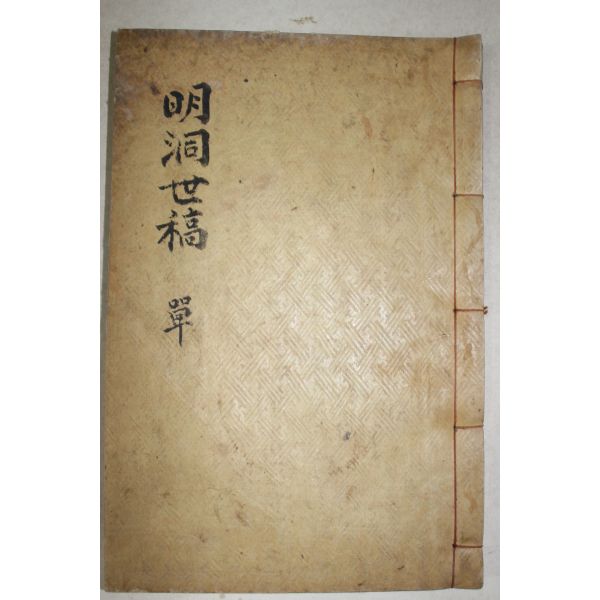 明洞世稿 單